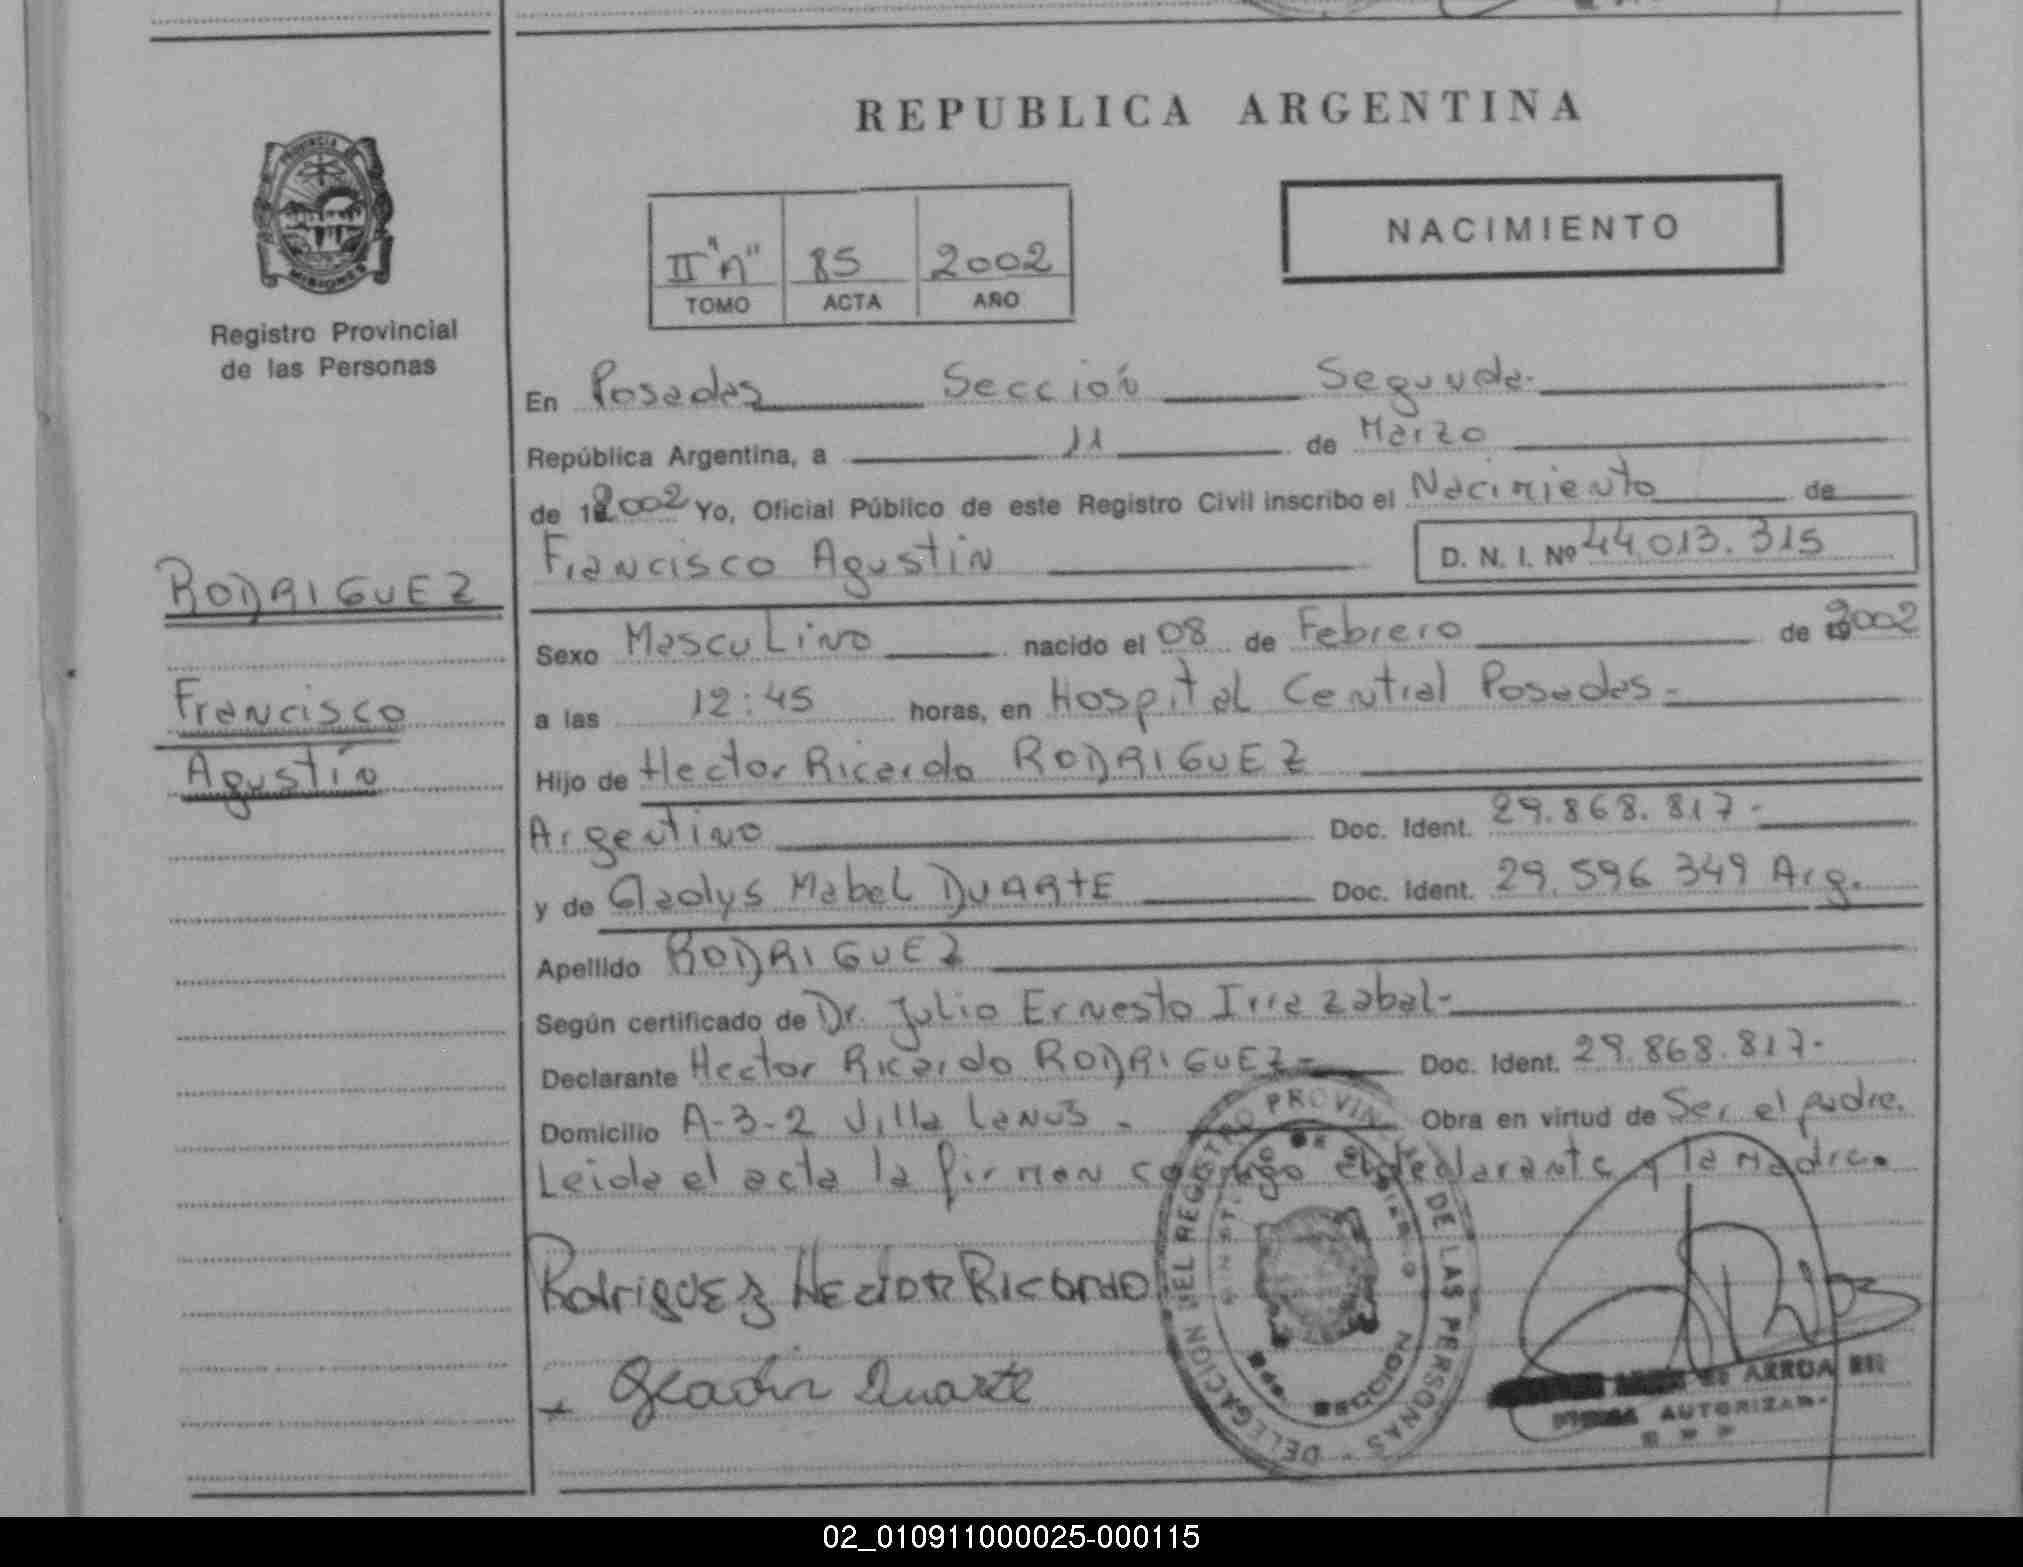 REPUBLICA ARGENTINA
PROVINCIA
MISIONES
Registro Provincial
de las Personas
NACIMIENTO
II "A" 85 2002
TOMO ACTA AÑO
En Posadas Sección Segunda.
República Argentina, a 11 de Marzo
de 2002 Yo, Oficial Público de este Registro Civil inscribo el Nacimiento de
Francisco Agustin D. N. I. Nº 44.013.315
RODRIGUEZ
Francisco
Agustín
Sexo Masculino nacido el 08 de Febrero de 2002
a las 12:45 horas, en Hospital Central Posadas-
Hijo de Hector Ricardo RODRIGUEZ
Argentino Doc. Ident. 29.868.817-
y de Gladys Mabel DUARTE Doc. Ident. 29.596 349 Arg.
Apellido RODRIGUEZ
Según certificado de Dr. Julio Ernesto Irrazabal-
Declarante Hector Ricardo RODRIGUEZ- Doc. Ident. 29.868.817-
Domicilio A-3-2 Villa Lanus - Obra en virtud de Ser el padre.
Leida el acta la firman conmigo el declarante y la Madre.
Rodriguez Hector Ricardo
Duarte
DELEGACION DEL REGISTRO PROVINCIAL DE LAS PERSONAS
SECCION
DE ARROA
FIRMA AUTORIZADA
02_010911000025-000115